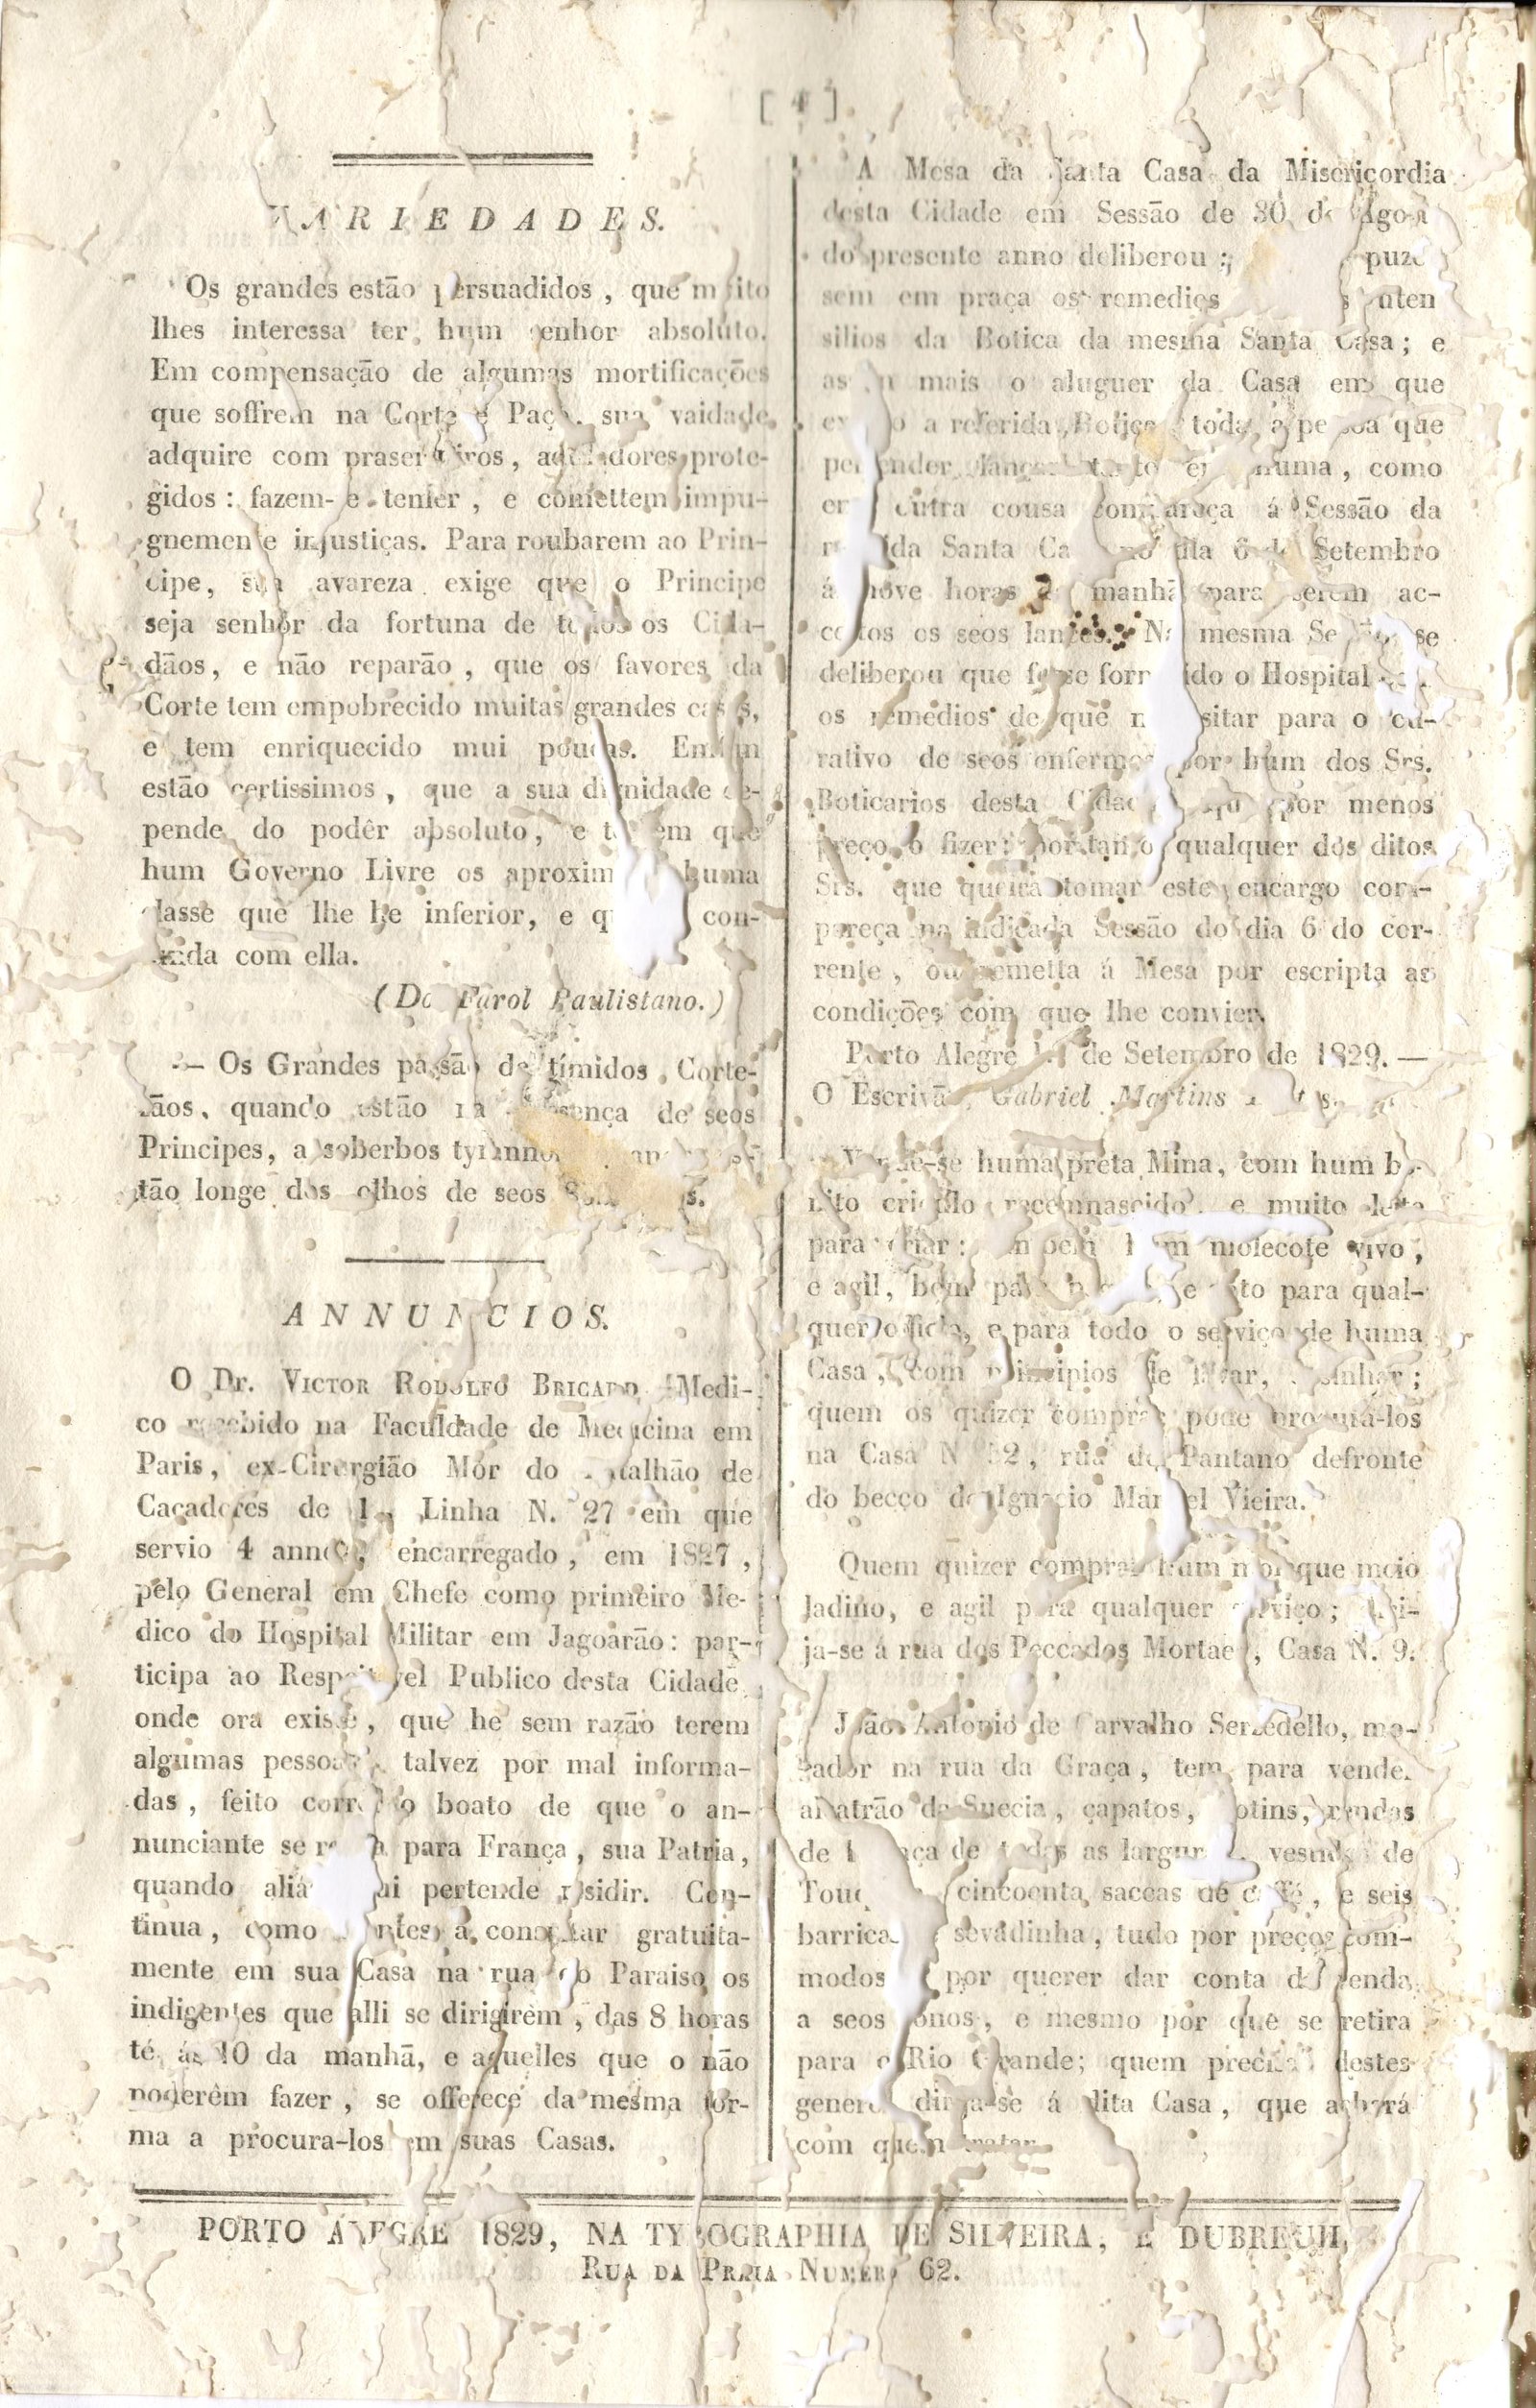 [ 4 ]
VARIEDADES.
Os grandes estão persuadidos, que muito
lhes interessa ter hum senhor absoluto.
Em compensação de algumas mortificações
que soffrem na Corte e Paço, sua vaidade
adquire com praser aduladores prote-
gidos: fazem-se temer, e comettem impu-
gnemente injustiças. Para roubarem ao Prin-
cipe, sua avareza exige que o Principe
seja senhor da fortuna de todos os Cida-
dãos, e não reparão, que os favores da
Corte tem empobrecido muitas grandes casas,
e tem enriquecido mui poucas. Emfim
estão certissimos, que a sua dignidade de-
pende do podêr absoluto, e temem que
hum Governo Livre os aproxim huma
classe que lhe he inferior, e con-
fundida com ella.
(Do Farol Paulistano.)
— Os Grandes passão de tímidos Corte-
zãos, quando estão na presença de seos
Principes, a soberbos tyrannos es-
tão longe dos olhos de seos
ANNUNCIOS.
O Dr. Victor Rodolfo Bricard, Medi-
co recebido na Faculdade de Medicina em
Paris, ex-Cirurgião Mór do Batalhão de
Caçadores de 1.ª Linha N. 27 em que
servio 4 annos, encarregado, em 1827,
pelo General em Chefe como primeiro Me-
dico do Hospital Militar em Jagoarão: par-
ticipa ao Respeitavel Publico desta Cidade
onde ora existe, que he sem razão terem
algumas pessoas, talvez por mal informa-
das, feito correr o boato de que o an-
nunciante se retira para França, sua Patria,
quando aliás aqui pertende residir. Con-
tinua, como antes, a consultar gratuita-
mente em sua Casa na rua do Paraiso os
indigentes que alli se dirigirem, das 8 horas
té ás 10 da manhã, e aquelles que o não
poderêm fazer, se offerece da mesma for-
ma a procura-los em suas Casas.
A Mesa da Santa Casa da Misericordia
desta Cidade em Sessão de 30 de Agosto
do presente anno deliberou puzes-
sem em praça os remedios uten
silios da Botica da mesma Santa Casa; e
assim mais o aluguer da Casa em que
existio a referida Botica; toda a pessoa que
pertender lançar tanto em huma, como
em outra cousa compareça á Sessão da
referida Santa Casa no dia 6 de Setembro
ás nove horas da manhã para serem ac-
ceitos os seos lances. Na mesma Sessão se
deliberou que fosse fornecido o Hospital
os remedios de que necessitar para o cu-
rativo de seos enfermos por hum dos Srs.
Boticarios desta Cidade, que por menos
preço o fizer: portanto qualquer dos ditos
Srs. que queira tomar este encargo com-
pareça na indicada Sessão do dia 6 do cor-
rente, ou remetta á Mesa por escripta as
condições com que lhe convier.
Porto Alegre 1.º de Setembro de 1829. —
O Escrivão, Gabriel Martins
Vende-se huma preta Mina, com hum bo-
nito crioulo recemnascido, e muito leite
para criar: tambem hum molecote vivo,
e agil, bom para e apto para qual-
quer officio, e para todo o serviço de huma
Casa, com principios de lavar, cosinhar;
quem os quizer comprar pode procura-los
na Casa N. 52, rua do Pantano defronte
do becco de Ignacio Manoel Vieira.
Quem quizer comprar hum moleque meio
ladino, e agil para qualquer serviço; diri-
ja-se á rua dos Peccados Mortaes, Casa N. 9.
João Antonio de Carvalho Serzedello, mo-
rador na rua da Graça, tem para vender
alcatrão da Suecia, çapatos, botins, rendas
de França de todas as larguras, vestidos de
Touquim, cincoenta saccas de caffé, e seis
barricas de sevadinha, tudo por preços com-
modos por querer dar conta da venda
a seos donos, e mesmo por que se retira
para o Rio Grande; quem precisar destes
generos dirija-se á dita Casa, que achará
com quem tratar.
PORTO ALEGRE 1829, NA TYPOGRAPHIA DE SILVEIRA, E DUBREUIL,
Rua da Praia Numero 62.